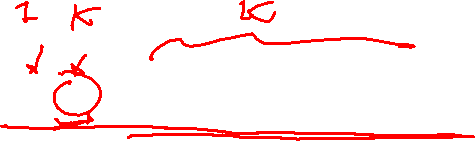 1 K K